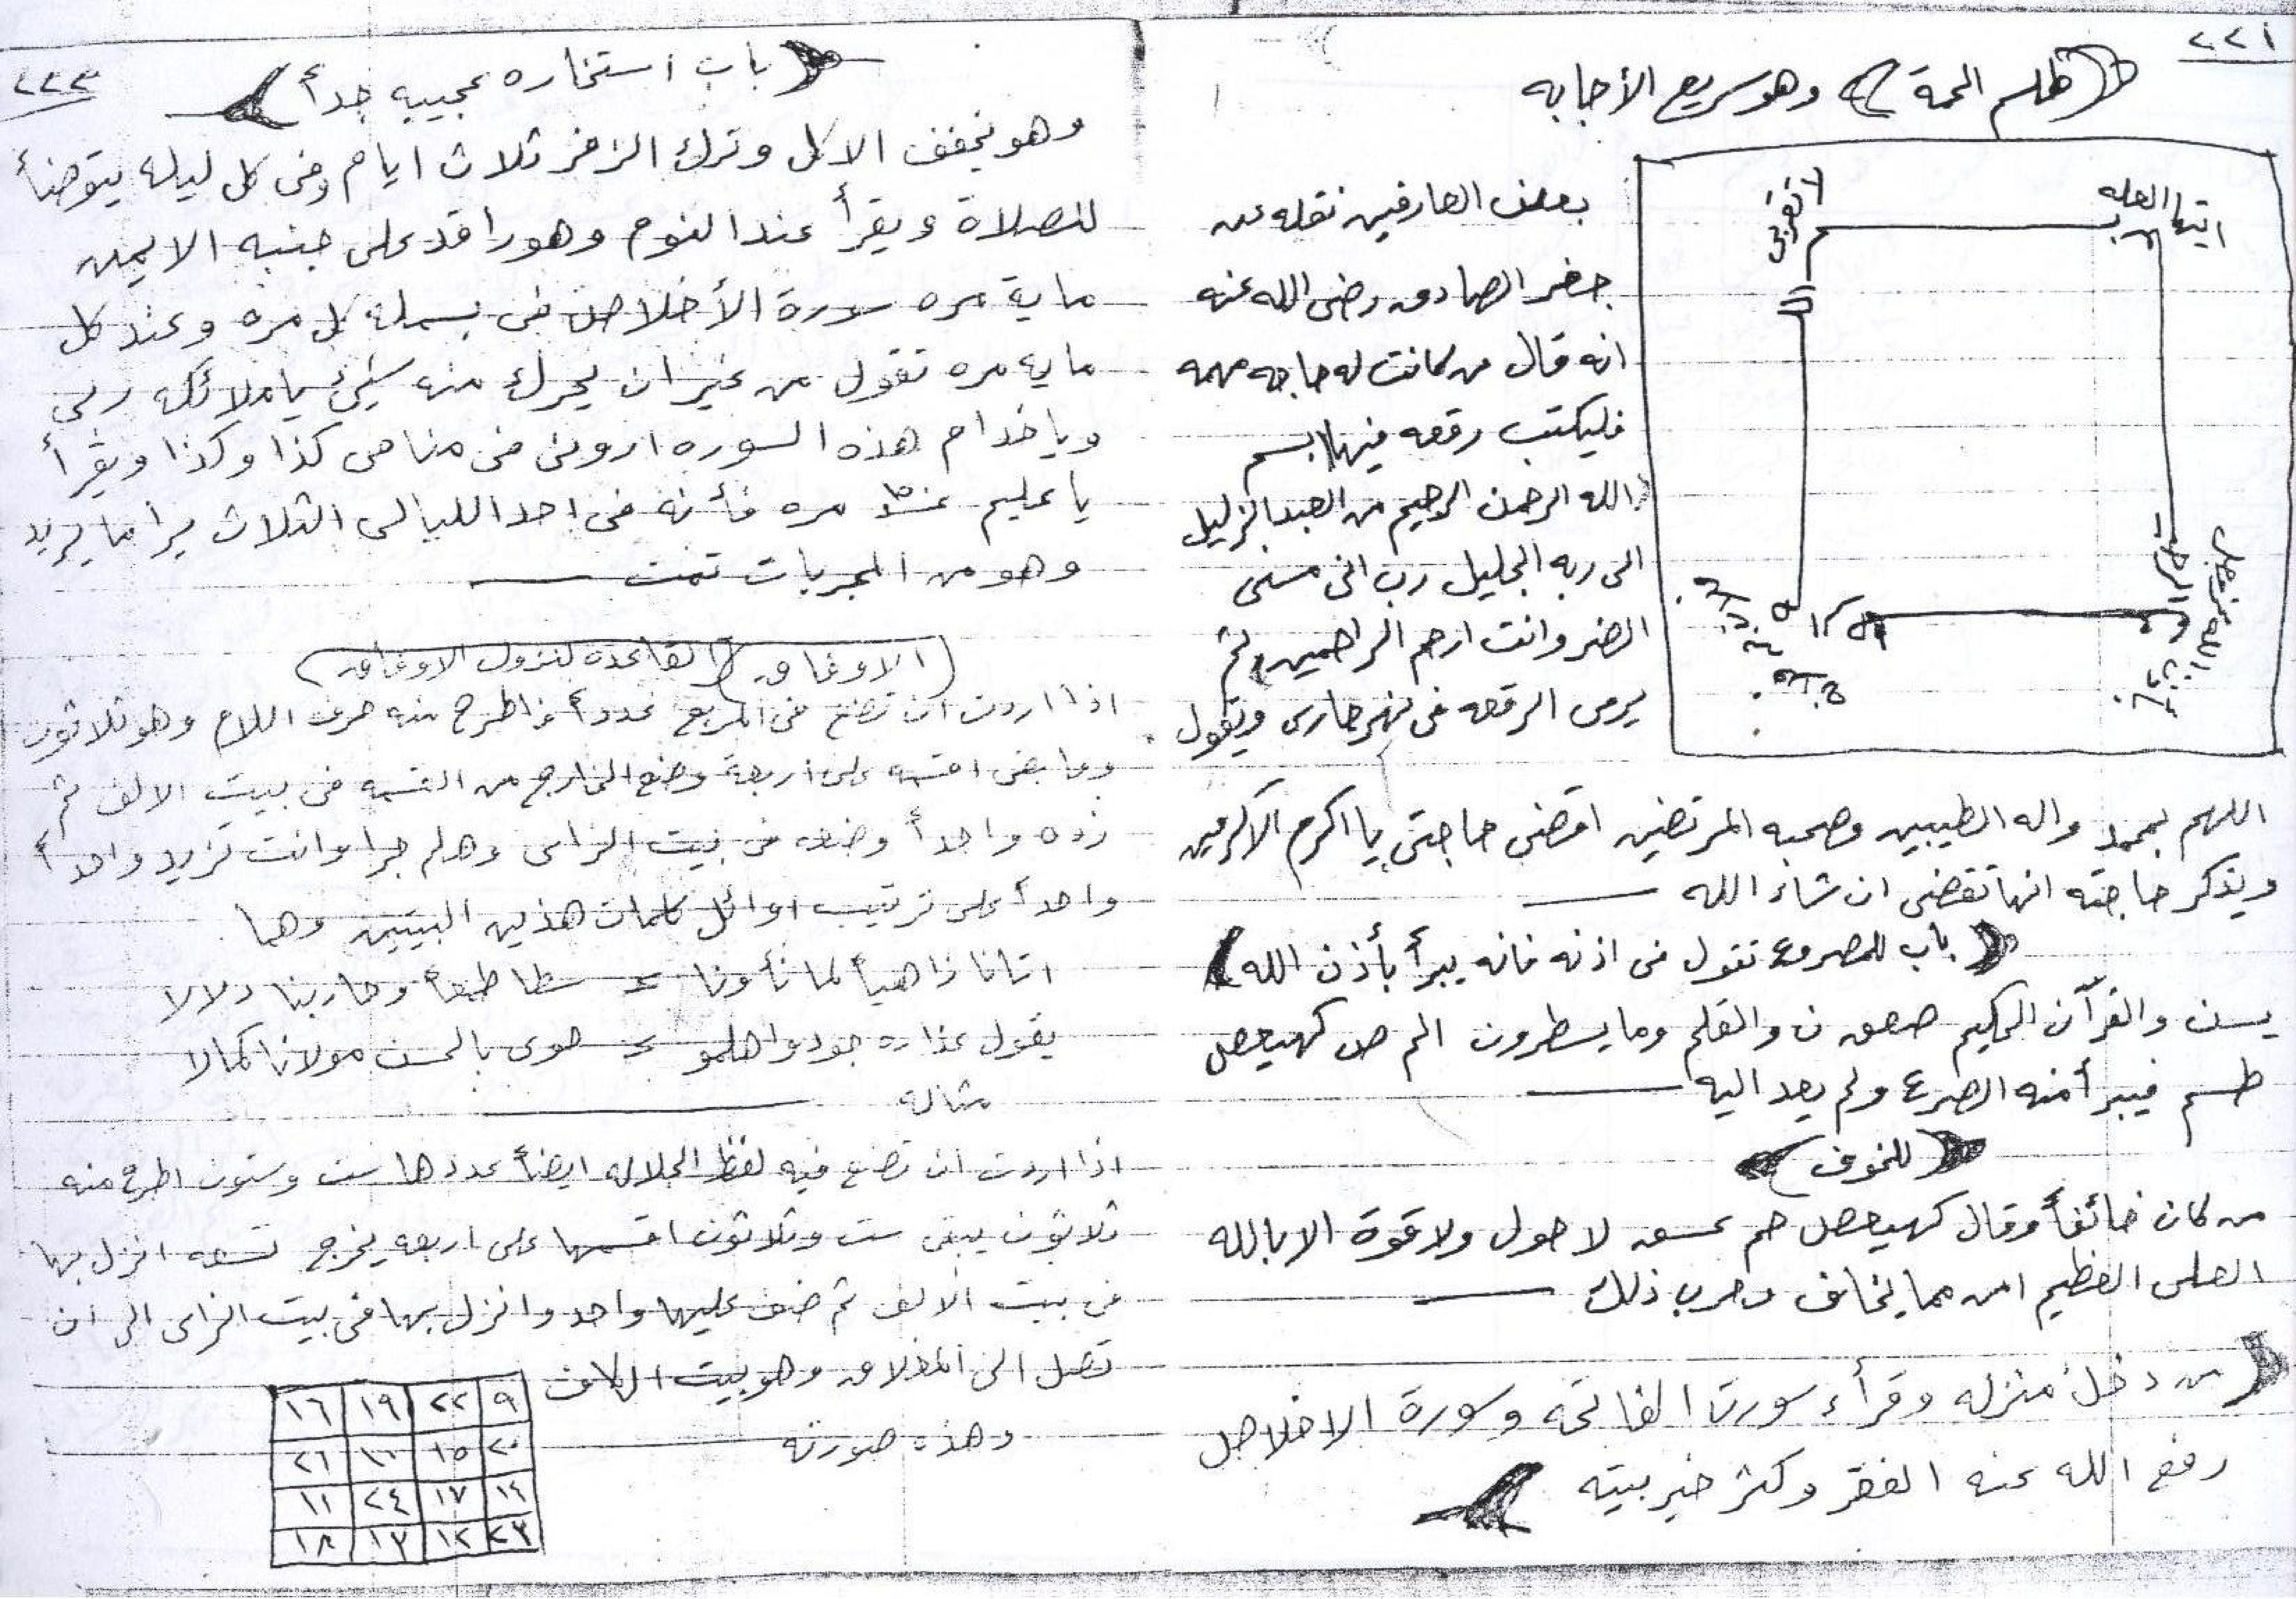 ٢٢١
(طلسم الحمة) وهو سريع الأجابه
ايتها العله
لا تقربي
بعض العارفين نقله عن
جعفر الصادق رضى الله عنه
انه قال من كانت له حاجه مهمه
فليكتب رقعه فيها بسم
الله الرحمن الرحيم من العبد الزليل
الى ربه الجليل رب انى مسنى
الضر وانت ارحم الراحمين ثم
يرمى الرقعه فى نهر جارى ويقول
اللهم بمحمد واله الطيبين وصحبه المرتضين اقضى حاجتى يا اكرم الاكرمين
ويذكر حاجته انها تقضى ان شاء الله
(باب للمصروع تقول فى اذنه فانه يبرأ بأذن الله)
يسن والقرآن الحكيم صعق ن والقلم وما يسطرون الم ص كهيعص
طسم فيبرأ منه الصرع ولم يعد اليه
(للخوف)
من كان خائفاً وقال كهيعص حم عسق لا حول ولا قوة الا بالله
العلى العظيم امن مما يخاف وجرب ذلك
من دخل منزله وقرأ سورت الفاتحه وسورة الاخلاص
رفع الله عنه الفقر وكثر خير بيته
٢٢٣
(باب استخاره عجيبيه جداً)
وهو تخفف الاكل وترك الزفر ثلاث ايام وفى كل ليله يتوضأ
للصلاة ويقرأ عند النوم وهو راقد على جنبه الايمن
ماية مره سورة الأخلاص فى بسملة كل مره وعند كل
مايه مره تقول من غير ان يحرك منه شيئ يا ملائكه ربى
ويا خدام هذه السوره ارونى فى منامى كذا وكذا ويقرأ
يا عليم مره فأنه فى احد الليالى الثلاث يرا ما يريد
وهو من المجربات تمت
(الاوفاق) (القاعده لنزول الاوفاق)
اذا اردت ان تضع فى المربع عدداً فاطرح منه حرف اللام وهو ثلاثون
وما بقى اقسمه على اربعة وضع الخارج من القسمه فى بيت الالف ثم
زده واحداً وضعه فى بيت الزاى وهلم جرا وانت تزيد واحداً
واحداً على ترتيب اوائل كلمات هذين البيتين وهما
اتانا زاهياً لما نأونا سطا طبعاً وحاربنا دلالا
يقول عذاره جودوا هلمو حوى بالحسن مولانا كمالا
مثاله
اذا اردت ان تضع فيه لفظ الجلاله ايضاً عددها ست وستون اطرح منه
ثلاثون يبقى ست وثلاثون اقسمها على اربعه يخرج تسعه انزل بها
فى بيت الالف ثم ضف عليها واحد وانزل بها فى بيت الزاى الى ان
تصل الى المغلاق وهو بيت الكاف
وهذه صورته
٩ ٢٢ ١٩ ١٦
٢٠ ١٥ ١٠ ٢١
١٤ ١٧ ٢٤ ١١
٢٣ ١٢ ١٣ ١٨